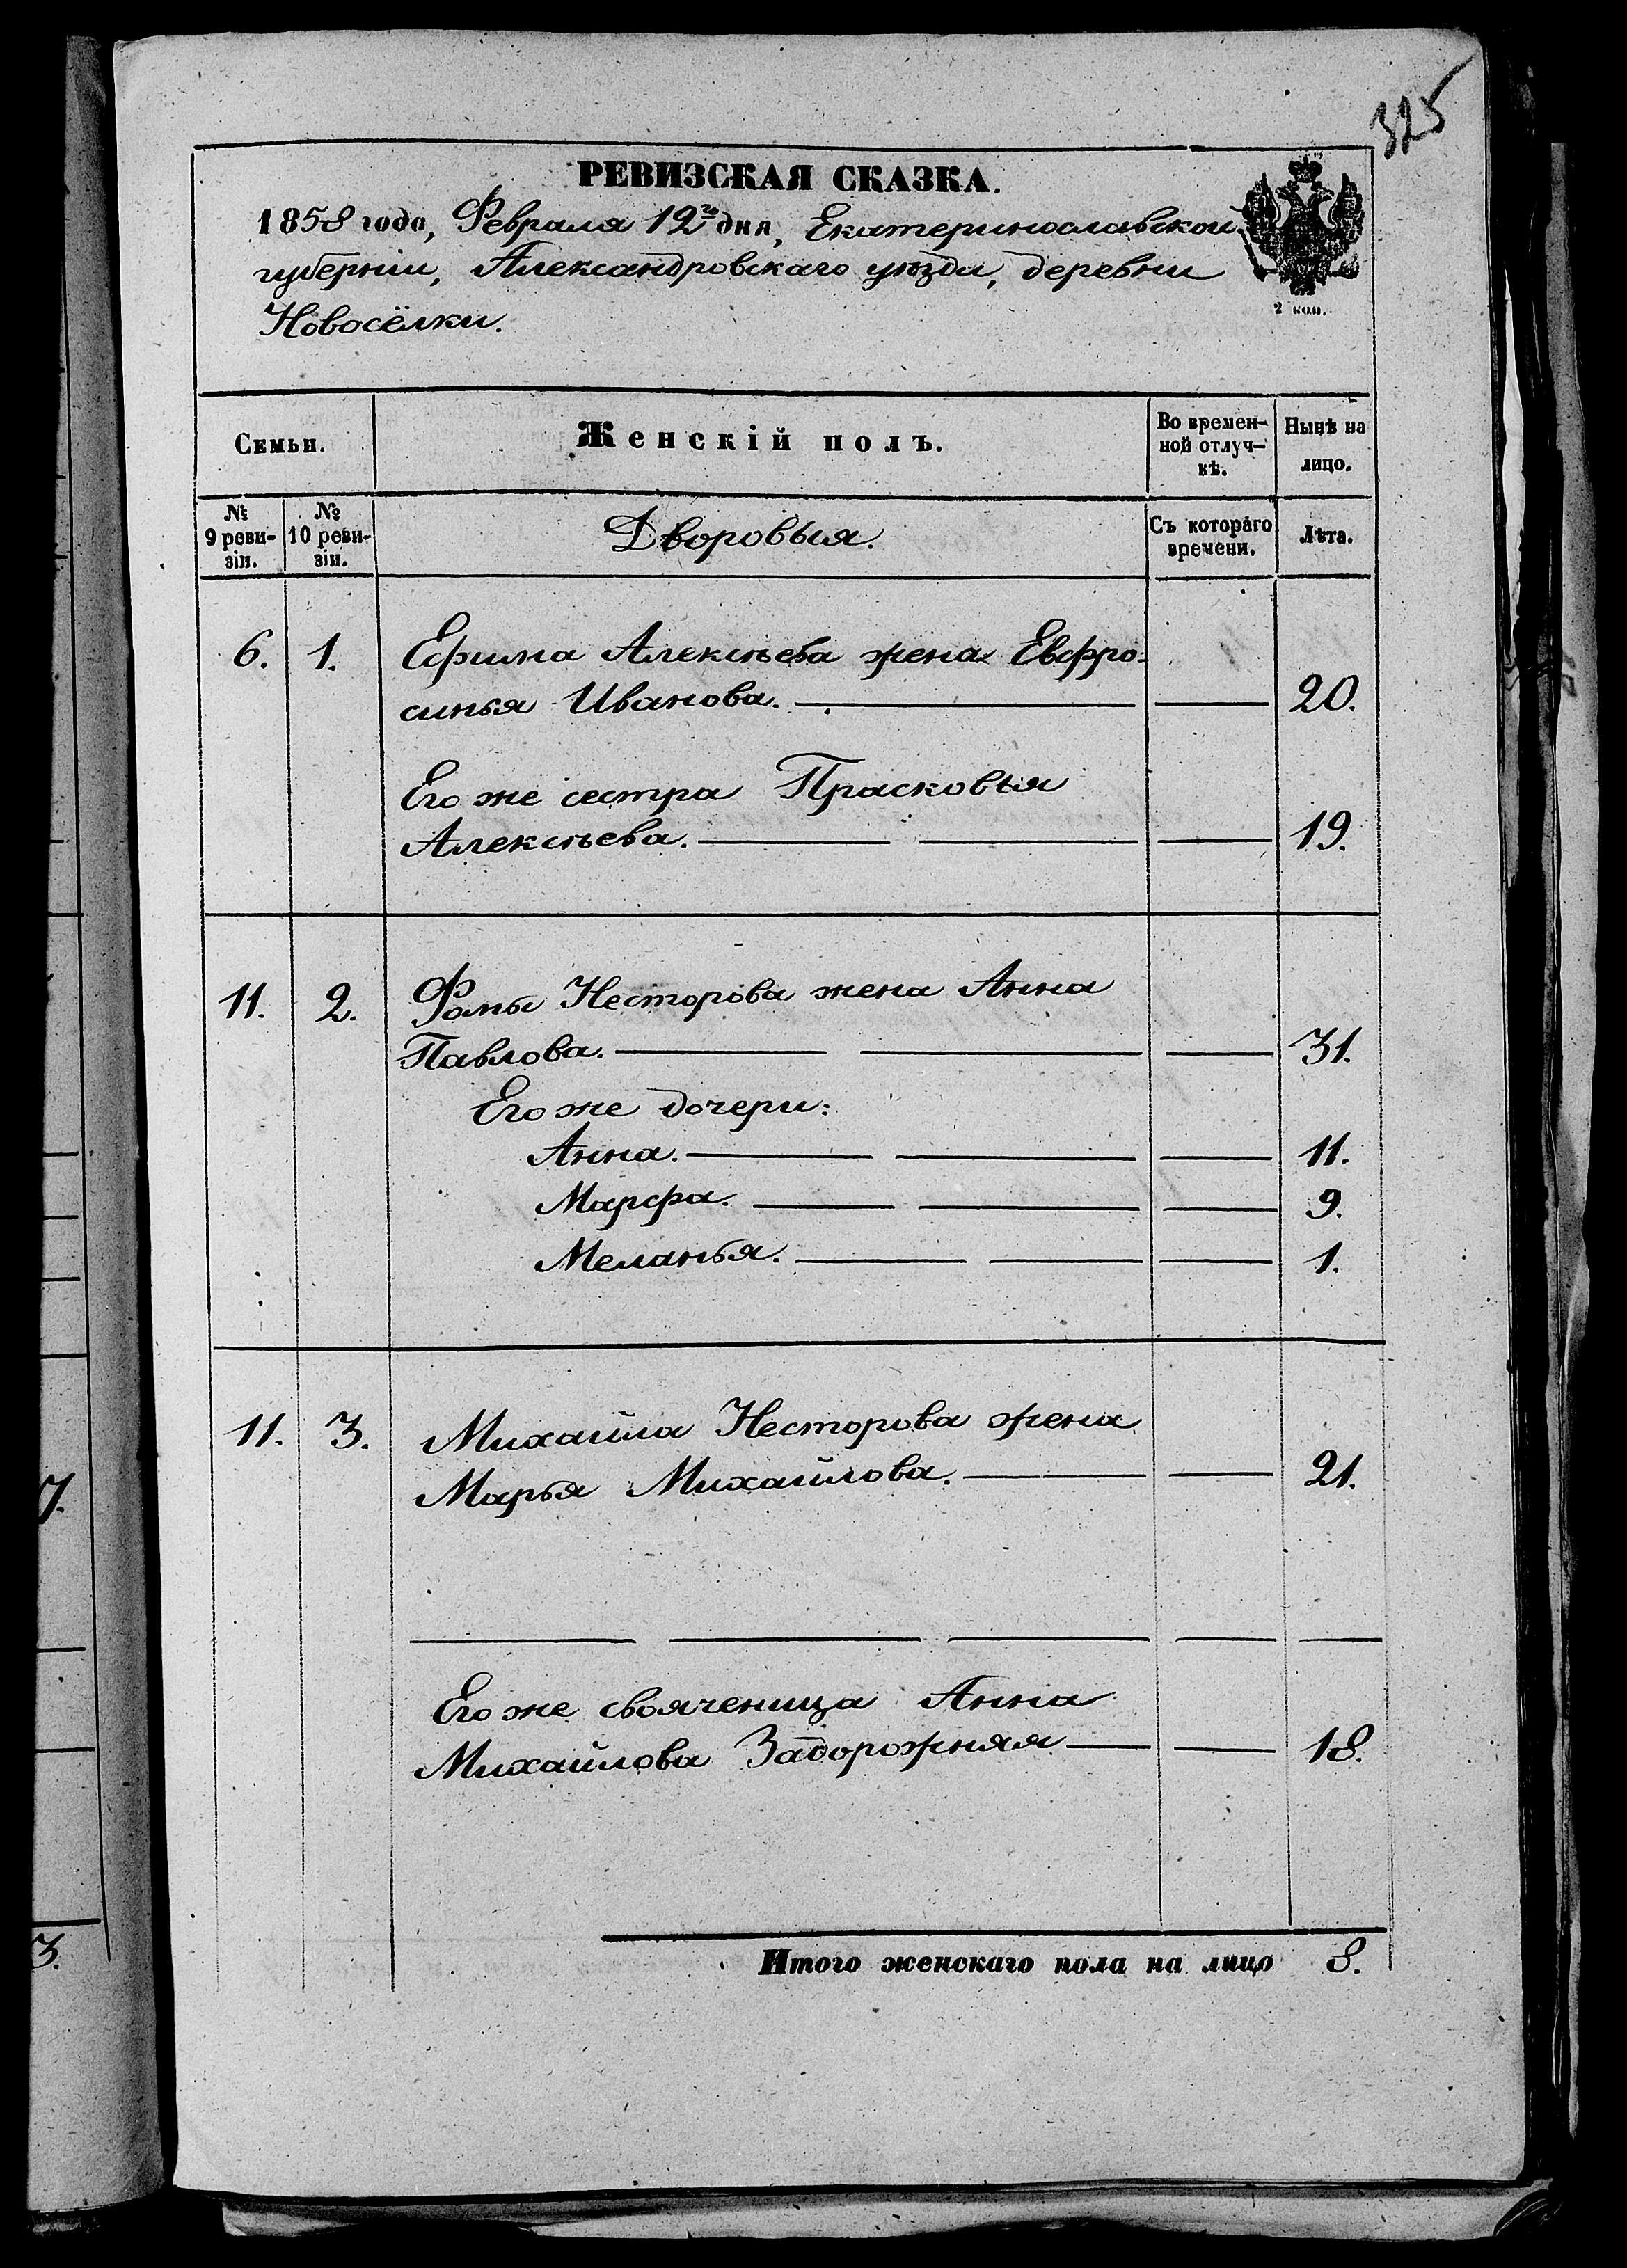 325
РЕВИЗСКАЯ СКАЗКА.
1858 года, Февраля 12го дня, Екатеринославской
губерніи, Александровскаго уѣзда, деревни
Новосёлки.
2 коп.
Семьи.
Женскій полъ.
Во времен-
ной отлуч-
кѣ.
Нынѣ на
лицо.
№
9 реви-
зіи.
№
10 реви-
зіи.
Дворовыя.
Съ котораго
времени.
Лѣта.
6. 1. Ефима Алексѣева жена Евфро-
синья Иванова. 20.
Его же сестра Прасковья
Алексѣева. 19.
11. 2. Фомы Несторова жена Анна
Павлова. 31.
Его же дочери:
Анна. 11.
Марфа. 9.
Меланья. 1.
11. 3. Михайла Несторова жена
Марья Михайлова. 21.
Его же свояченица Анна
Михайлова Задорожняя 18.
Итого женскаго пола на лицо 8.
7.
3.